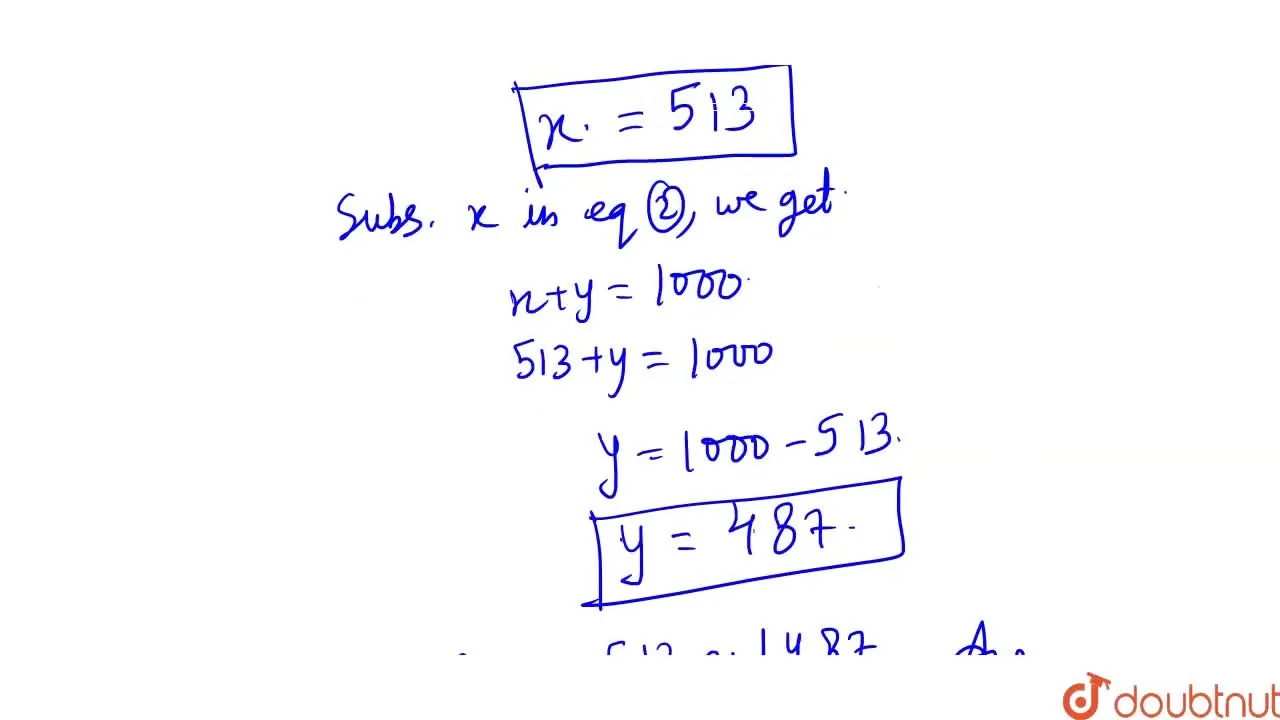 x. = 513
Subs. x in eq ②, we get.
x+y = 1000.
513+y = 1000
y = 1000 - 513.
y = 487.
doubtnut